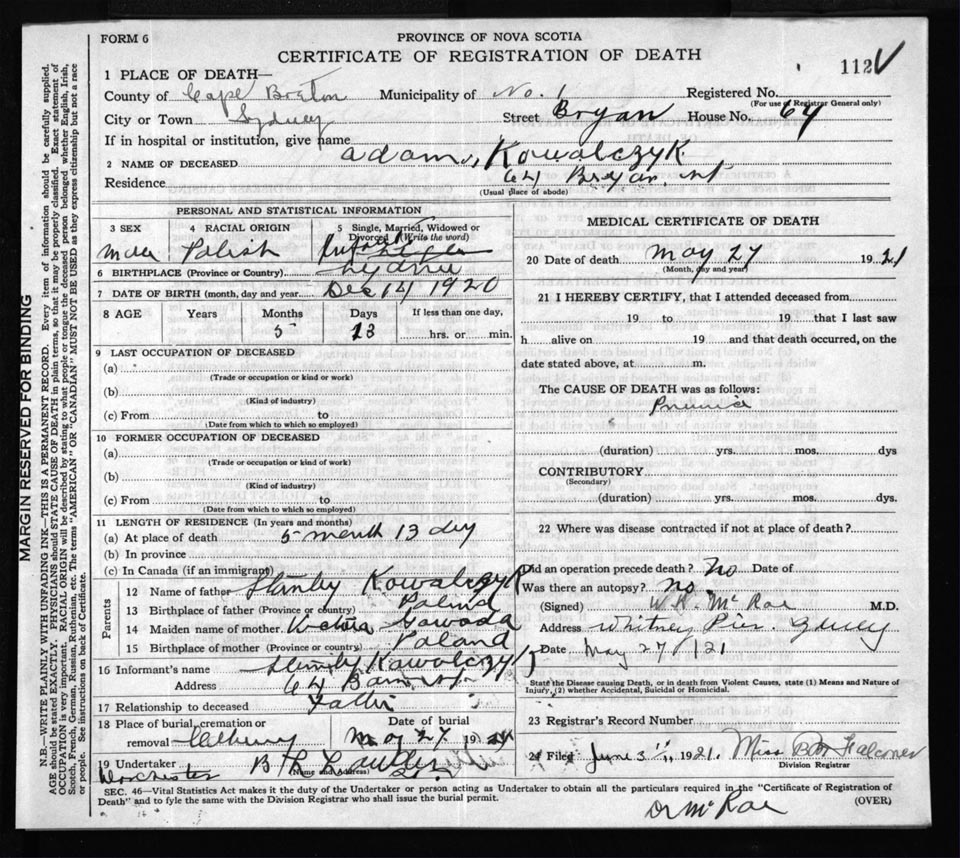 FORM 6
PROVINCE OF NOVA SCOTIA
CERTIFICATE OF REGISTRATION OF DEATH
112
1 PLACE OF DEATH—
County of Cape Breton Municipality of No. 1 Registered No.
(For use of Registrar General only)
City or Town Sydney Street Bryan House No. 64
If in hospital or institution, give name
2 NAME OF DECEASED adam Kowalczyk
Residence 64 Bryan st
(Usual place of abode)
PERSONAL AND STATISTICAL INFORMATION
3 SEX 4 RACIAL ORIGIN 5 Single, Married, Widowed or Divorced (Write the word)
Male Polish Infant
6 BIRTHPLACE (Province or Country) Sydney
7 DATE OF BIRTH (month, day and year) Dec 14 1920
8 AGE Years Months Days If less than one day,
5 13 hrs. or min.
9 LAST OCCUPATION OF DECEASED
(a)
(Trade or occupation or kind or work)
(b)
(Kind of industry)
(c) From to
(Date from which to which so employed)
10 FORMER OCCUPATION OF DECEASED
(a)
(Trade or occupation or kind of work)
(b)
(Kind of industry)
(c) From to
(Date from which to which so employed)
11 LENGTH OF RESIDENCE (In years and months)
(a) At place of death 5 month 13 day
(b) In province
(c) In Canada (if an immigrant)
Parents
12 Name of father Stanly Kowalczyk
13 Birthplace of father (Province or country) Polind
14 Maiden name of mother
15 Birthplace of mother (Province or country) Poland
16 Informant's name Stanly Kowalczyk
Address 64
17 Relationship to deceased Father
18 Place of burial, cremation or removal Date of burial
May 27 19
19 Undertaker
(Name and address)
Dorchester
MEDICAL CERTIFICATE OF DEATH
20 Date of death May 27 1921
(Month, day and year)
21 I HEREBY CERTIFY, that I attended deceased from
19 to 19 that I last saw
h alive on 19 and that death occurred, on the
date stated above, at m.
The CAUSE OF DEATH was as follows:
(duration) yrs. mos. dys
CONTRIBUTORY
(Secondary)
(duration) yrs. mos. dys.
22 Where was disease contracted if not at place of death?
Did an operation precede death? No Date of
Was there an autopsy? no
(Signed) McRae M.D.
Address Whitney Pier. Sydney
Date May 27/21
State the Disease causing Death, or in death from Violent Causes, state (1) Means and Nature of
Injury, (2) whether Accidental, Suicidal or Homicidal.
23 Registrar's Record Number
24 Filed June 3 1921. Miss Falconer
Division Registrar
SEC. 46—Vital Statistics Act makes it the duty of the Undertaker or person acting as Undertaker to obtain all the particulars required in the "Certificate of Registration of
Death" and to fyle the same with the Division Registrar who shall issue the burial permit.
(OVER)
Dr McRae
MARGIN RESERVED FOR BINDING
N.B.—WRITE PLAINLY WITH UNFADING INK—THIS IS A PERMANENT RECORD. Every item of information should be carefully supplied.
AGE should be stated EXACTLY. PHYSICIANS should STATE CAUSE OF DEATH in plain terms, so that it may be properly classified. Exact statement of
OCCUPATION is very important. RACIAL ORIGIN will be described by stating to what people or tongue the deceased person belonged whether English, Irish,
Scotch, French, German, Russian, Ruthenian, etc. The terms "AMERICAN" OR "CANADIAN" MUST NOT BE USED as they express citizenship but not a race
or people. See instructions on back of Certificate.